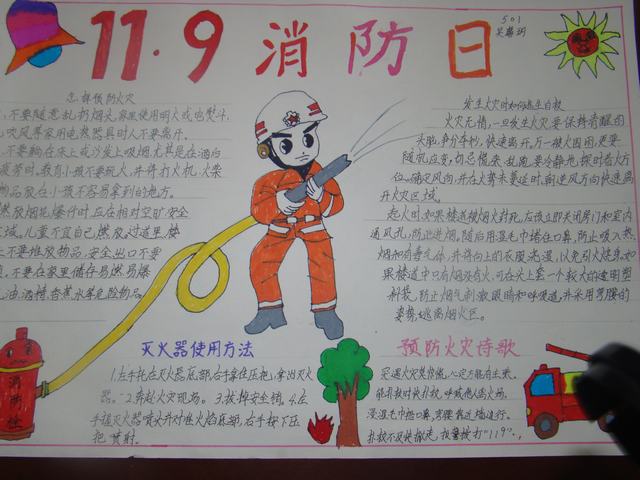 11.9 消防日
501
吴
怎样预防火灾
不要随意乱扔烟头,家里使用明火或电熨斗、
吹风等家用电热器具时人不要离开。
不要躺在床上或沙发上吸烟,尤其是在酒后
疲劳时,教育小孩不要玩火,并将打火机、火柴
物品放在小孩不容易拿到的地方。
燃放烟花、爆竹时,应在相对空旷、安全
区域。儿童不宜自己燃放。过道里、楼
不要堆放物品,安全出口不要
不要在家里储存易燃易爆
油、酒精、香蕉水等危险物品
发生火灾时如何逃生自救
火灾无情,一旦发生火灾,要保持清醒的
头脑,争分夺秒,快速离开,万一被火困围,更要
随机应变,切忌慌乱,要冷静地探明着火方
位,确定风向,并在火势未蔓延时,朝逆风方向快速离
开火灾区域。
起火时如果楼道被烟火封死,应该立即关闭房门和室内
通风孔,防止进烟。随后用湿毛巾堵住口鼻,防止吸入热
烟和有毒气体,并将身上的衣服浇湿,以免引火烧身。如
果楼道中只有烟没有火,可在头上套一个较大的透明塑
料袋,防止烟气刺激眼睛和呼吸道,并采用弯腰的
姿势,逃离烟火区。
灭火器使用方法
1.左手托在灭火器底部,右手拿住压把,拿出灭火
器。2.奔赴火灾现场。3.拔掉安全销。4.左
手握灭火器喷头并对准火焰底部,右手按下压
把喷射。
预防火灾诗歌
浸湿毛巾捂口鼻,弯腰靠近墙边行。
报警拨打"119"。
消防栓